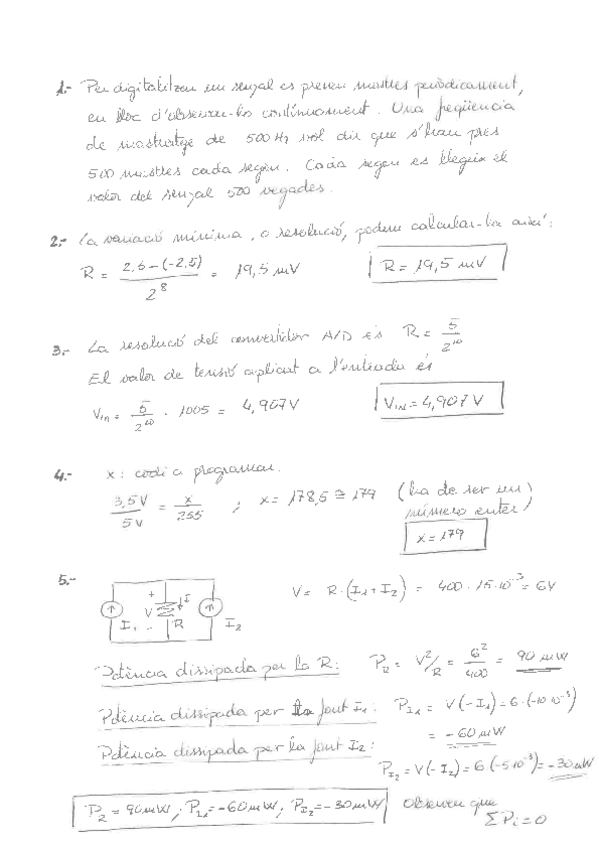 1.- Per digitalitzar un senyal es prenen mostres periòdicament,
en lloc d'observar-los contínuament. Una freqüència
de mostratge de 500 Hz vol dir que s'han pres
500 mostres cada segon. Cada segon es llegeix el
valor del senyal 500 vegades.
2.- La variació mínima, o resolució, podem calcular-la així:
R = 2,5-(-2,5) / 2^8 = 19,5 mV R = 19,5 mV
3.- La resolució del convertidor A/D és R = 5 / 2^10
El valor de tensió aplicat a l'entrada és
Vin = 5 / 2^10 · 1005 = 4,907 V VIN = 4,907 V
4.- x: codi a programar.
3,5V / 5V = x / 255 ; x = 178,5 ≅ 179 (ha de ser un
número enter)
x = 179
5.- V = R·(I1+I2) = 400·15·10^-3 = 6V
+ V I
I1 R I2
Potència dissipada per la R: PR = V²/R = 6²/400 = 90 mW
Potència dissipada per la font I1: PI1 = V(-I1) = 6·(-10·10^-3)
= -60 mW
Potència dissipada per la font I2:
PI2 = V(-I2) = 6(-5·10^-3) = -30 mW
PR = 90 mW; PI1 = -60 mW; PI2 = -30 mW Observeu que
ΣPi = 0